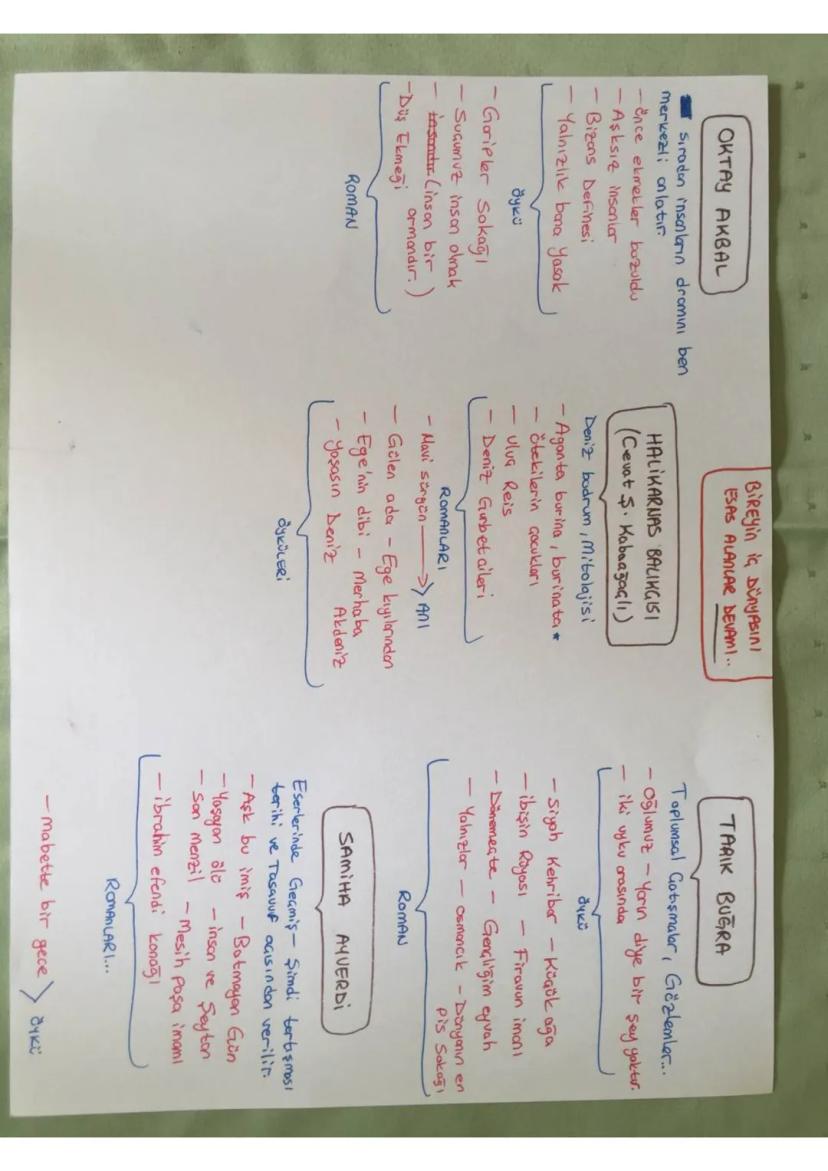 BİREYİN İÇ DÜNYASINI
ESAS ALANLAR DEVAMI..
OKTAY AKBAL
sıradan insanların dramını ben
merkezli anlatır.
- Önce ekmekler bozuldu
- Aşksız insanlar
- Bizans Definesi
- Yalnızlık bana Yasak
ÖYKÜ
- Garipler Sokağı
- Suçumuz insan olmak
- İnsandır (insan bir
ormandır.)
- Düş Ekmeği
ROMAN
HALİKARNAS BALIKÇISI
(Cevat Ş. Kabaağaçlı)
Deniz bodrum, Mitolojisi
- Aganta burina, burinata *
- Ötekilerin çocukları
- Uluç Reis
- Deniz Gurbetçileri
ROMANLARI
- Mavi sürgün → ANI
- Gülen ada - Ege kıyılarından
- Ege'nin dibi - Merhaba
Akdeniz
- Yaşasın Deniz
ÖYKÜLERİ
TARIK BUĞRA
Toplumsal Çatışmalar, Gözlemler...
- Oğlumuz - Yarın diye bir şey yoktur.
- iki uyku arasında
ÖYKÜ
- Siyah Kehribar - Küçük ağa
- ibişin Rüyası - Firavun imanı
- Dönemeçte - Gençliğim eyvah
- Yalnızlar - Osmancık - Dünyanın en
Pis Sokağı
ROMAN
SAMİHA AYVERDİ
Eserlerinde Geçmiş - Şimdi tartışması
tarihi ve Tasavvuf açısından verilir.
- Aşk bu imiş - Batmayan Gün
- Yaşayan ölü - insan ve Şeytan
- Son menzil - Mesih Paşa imamı
- ibrahim efendi konağı
ROMANLARI...
- mabette bir gece > ÖYKÜ